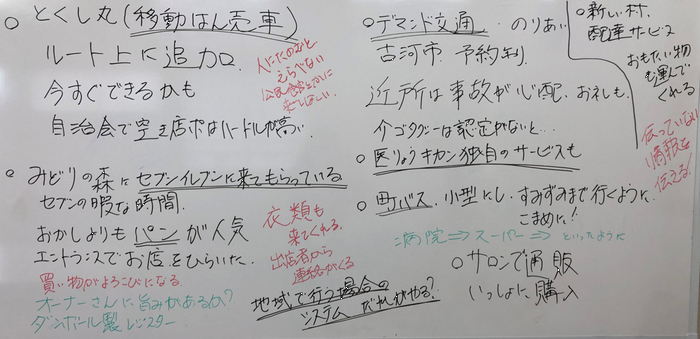 ○とくし丸(移動はん売車)
ルート上に追加
今すぐできるかも
自治会で空き店ポはハードルが高い
人にたのむと
えらべない
公民館とかに
来てほしい
○みどりの森にセブンイレブンに来てもらっている
セブンの暇な時間
おかしよりもパンが人気
エントランスでお店をひらいた.
買い物がよろこびになる
オーナーさんに旨みがあるか?
ダンボール製レジスター
衣類も
来てくれる.
出店者から
連絡がくる
地域で行う場合の
システム だれがやる?
○デマンド交通 のりあい
古河市 予約制
近所は事故が心配、お礼も、
介ゴタクシーは認定がないと…
○医りょうキカン独自のサービスも
○町バス、小型にし、すみずみまで行くように
こまめに!
病院⇒スーパー⇒といったように
○サロンで通販
いっしょに購入
○新しい村、
配達サービス
おもたい物
も運んで
くれる
伝っていない
情報を
伝える